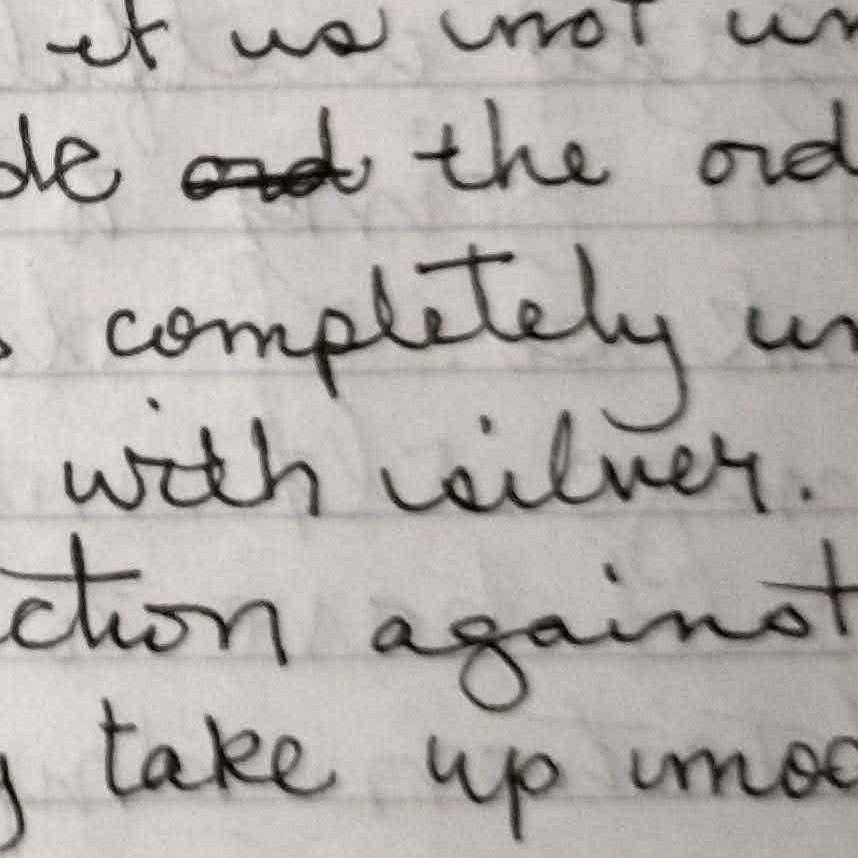 et us not un
de ord the ord
completely un
with silver.
ction against
take up moo